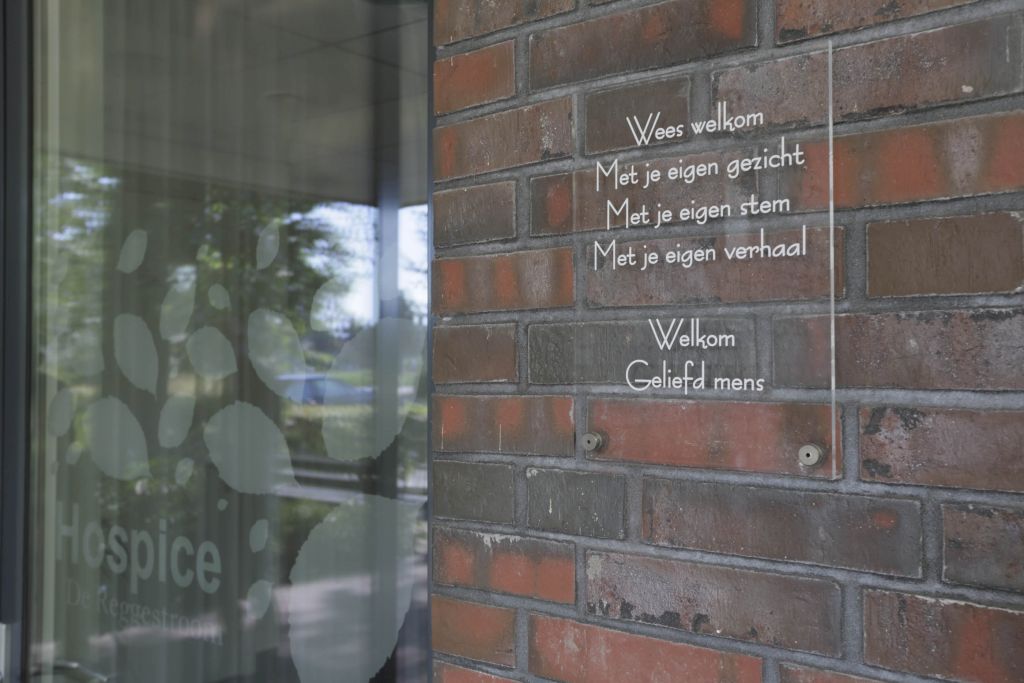 Wees welkom
Met je eigen gezicht
Met je eigen stem
Met je eigen verhaal
Welkom
Geliefd mens
Hospice
De Reggestroom